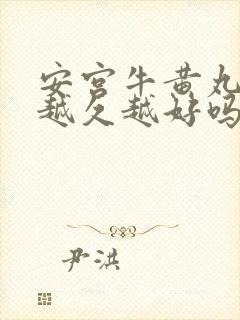 安宫牛黄丸
越久越好吗
尹洪